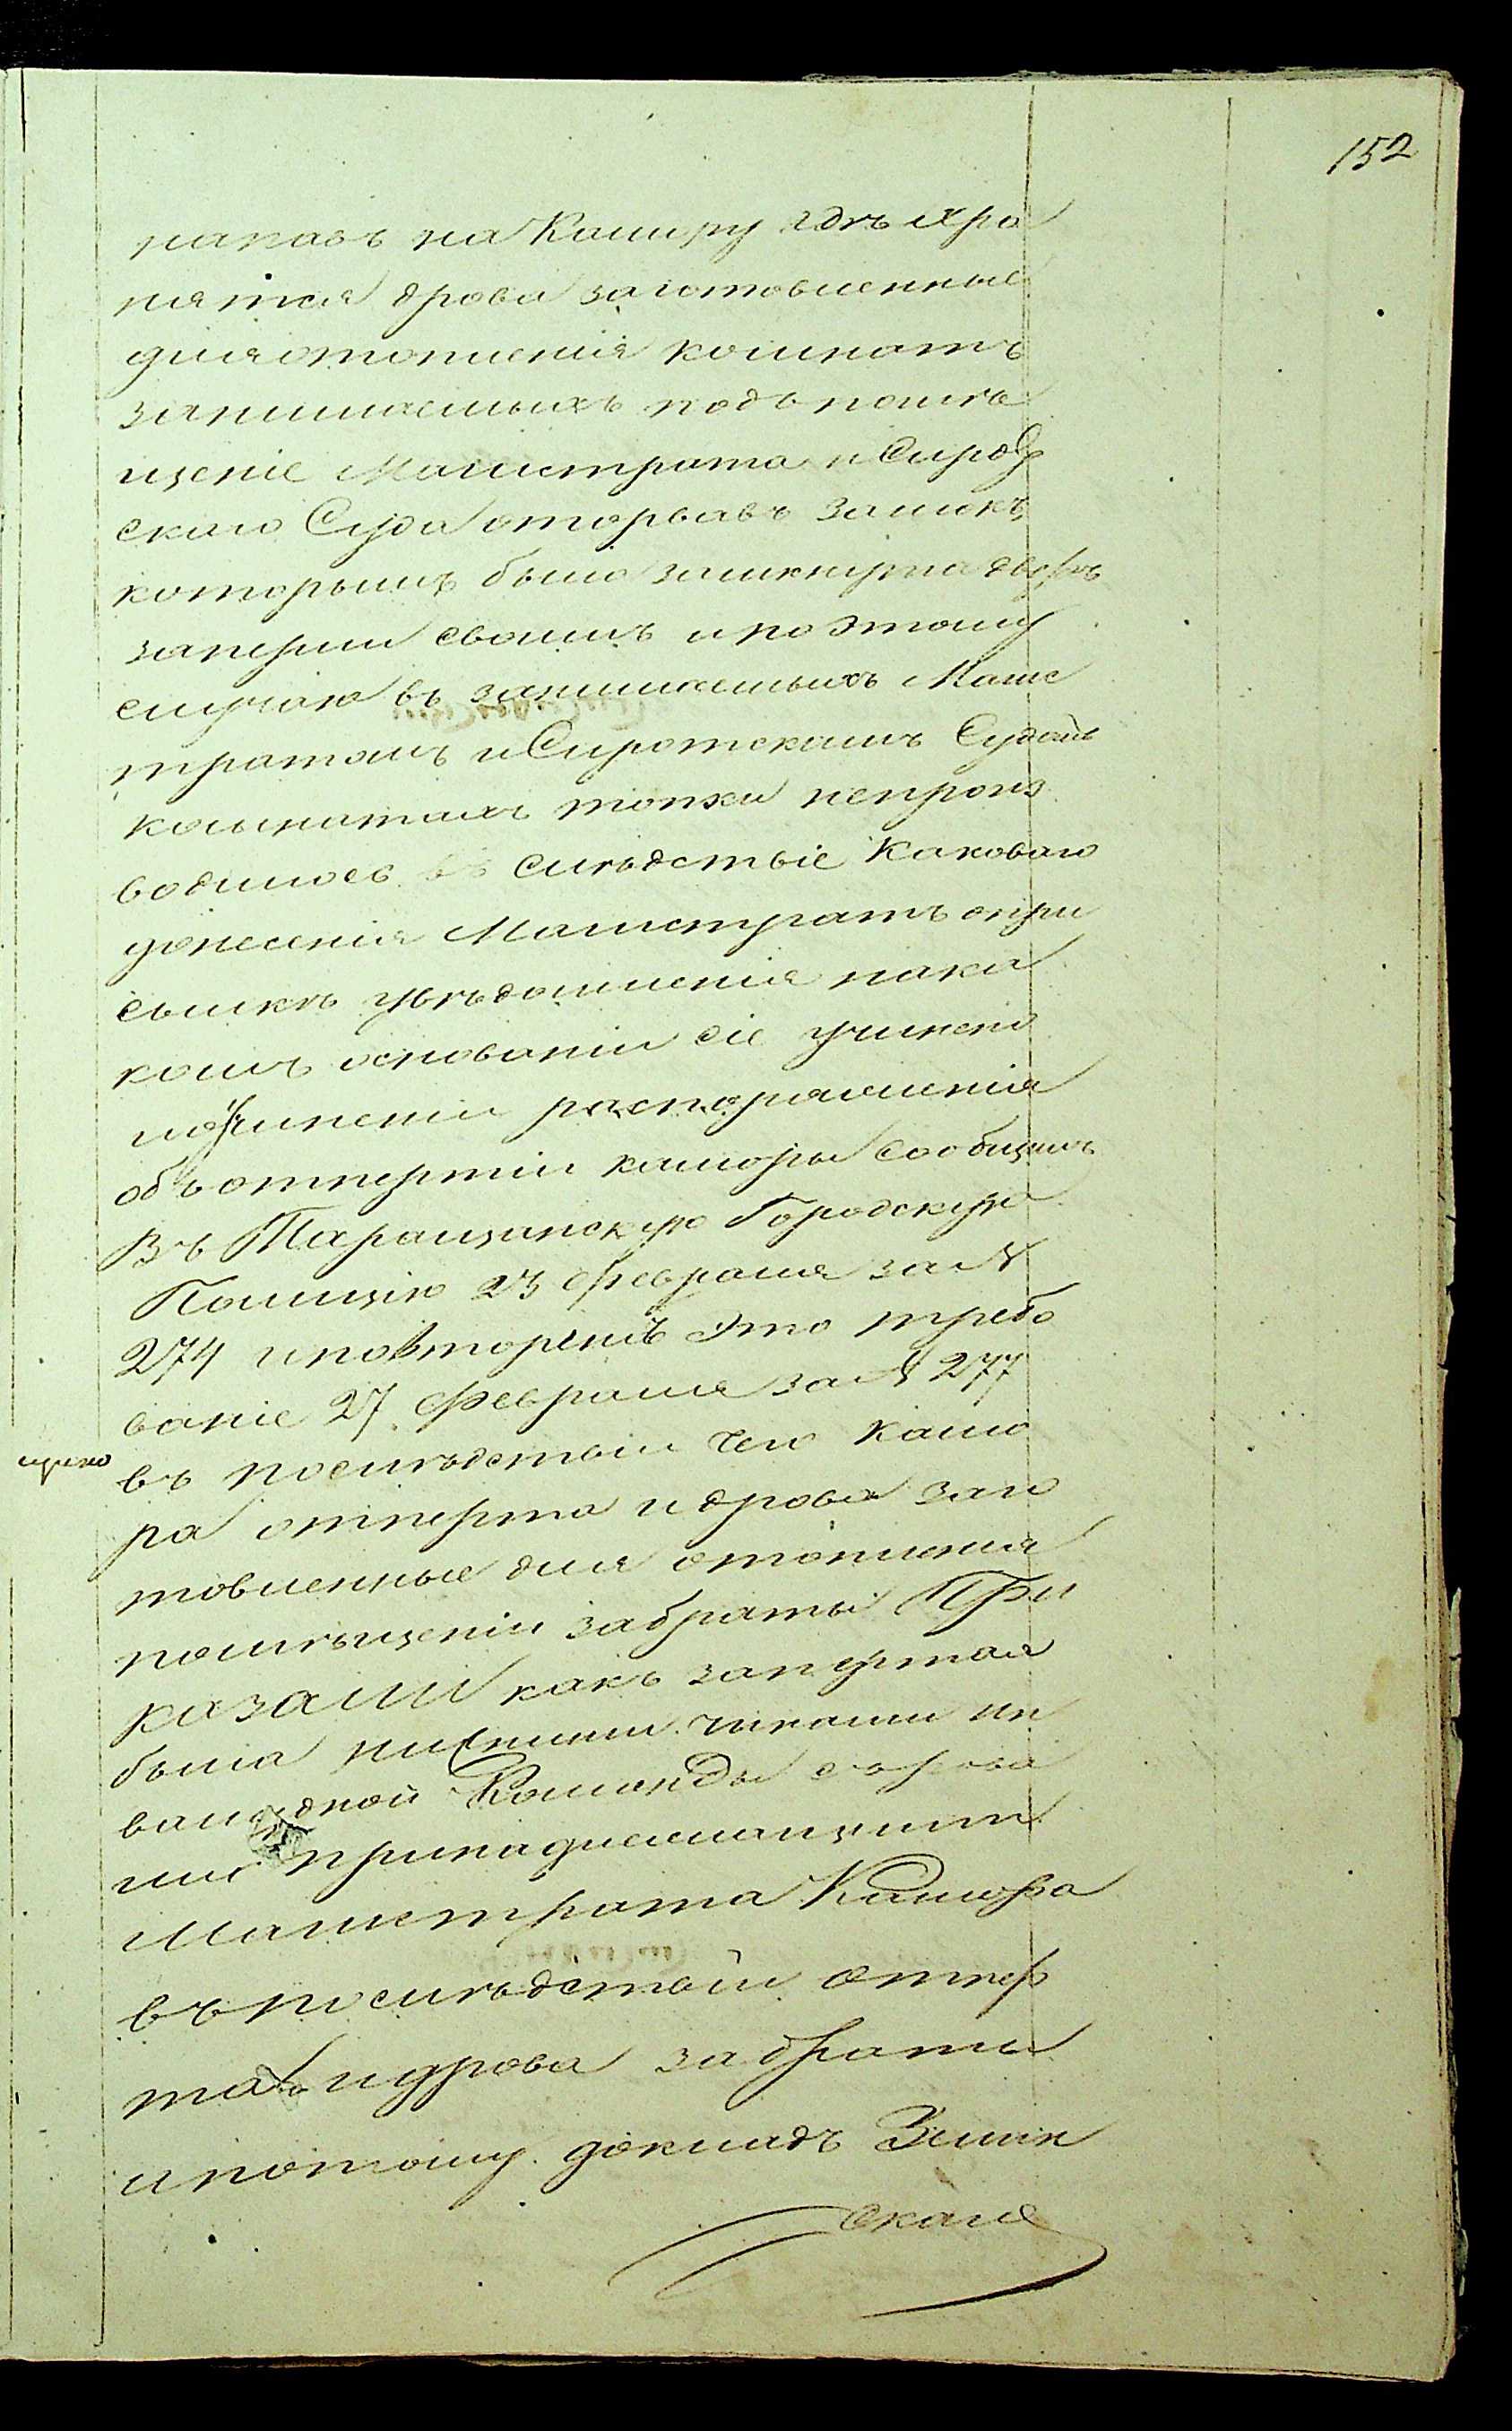 152
напавъ на Камору гдѣ хра
нятся дрова заготовленные
для отопленія комнатъ
занимаемыхъ подъ помѣ
щеніе Магистрата и Сирот
скаго Суда оторвавъ замокъ
которымъ была замкнута дверь
заперли своимъ и по этому
случаю въ занимаемыхъ Магис
тратомъ и Сиротскимъ Судомъ
комнатахъ топки непроиз
водилось въ Слѣдствіе Каковаго
донесенія Магистратъ о при
сылкѣ увѣдомленія нака
комъ основаніи сіе учинено
и о учиненіи распоряженія
объ отпертіи каморы сообщилъ
Въ Таращанскую Городскую
Полицію 23 Февраля за №
274 и повторилъ Это требо
ваніе 27 Февраля за № 277
въ послѣдствіи чего Камо
ра отперта и дрова заго
товленные для отопленія
помѣщеніи забраты При
казали какъ запертая
была нижними чинами Ин
валидной Команды с дрова
ми принадлежащими
Магистрата Камора
въ послѣдствіи отпер
та и дрова забраты
и потому докладъ Земли
скаго